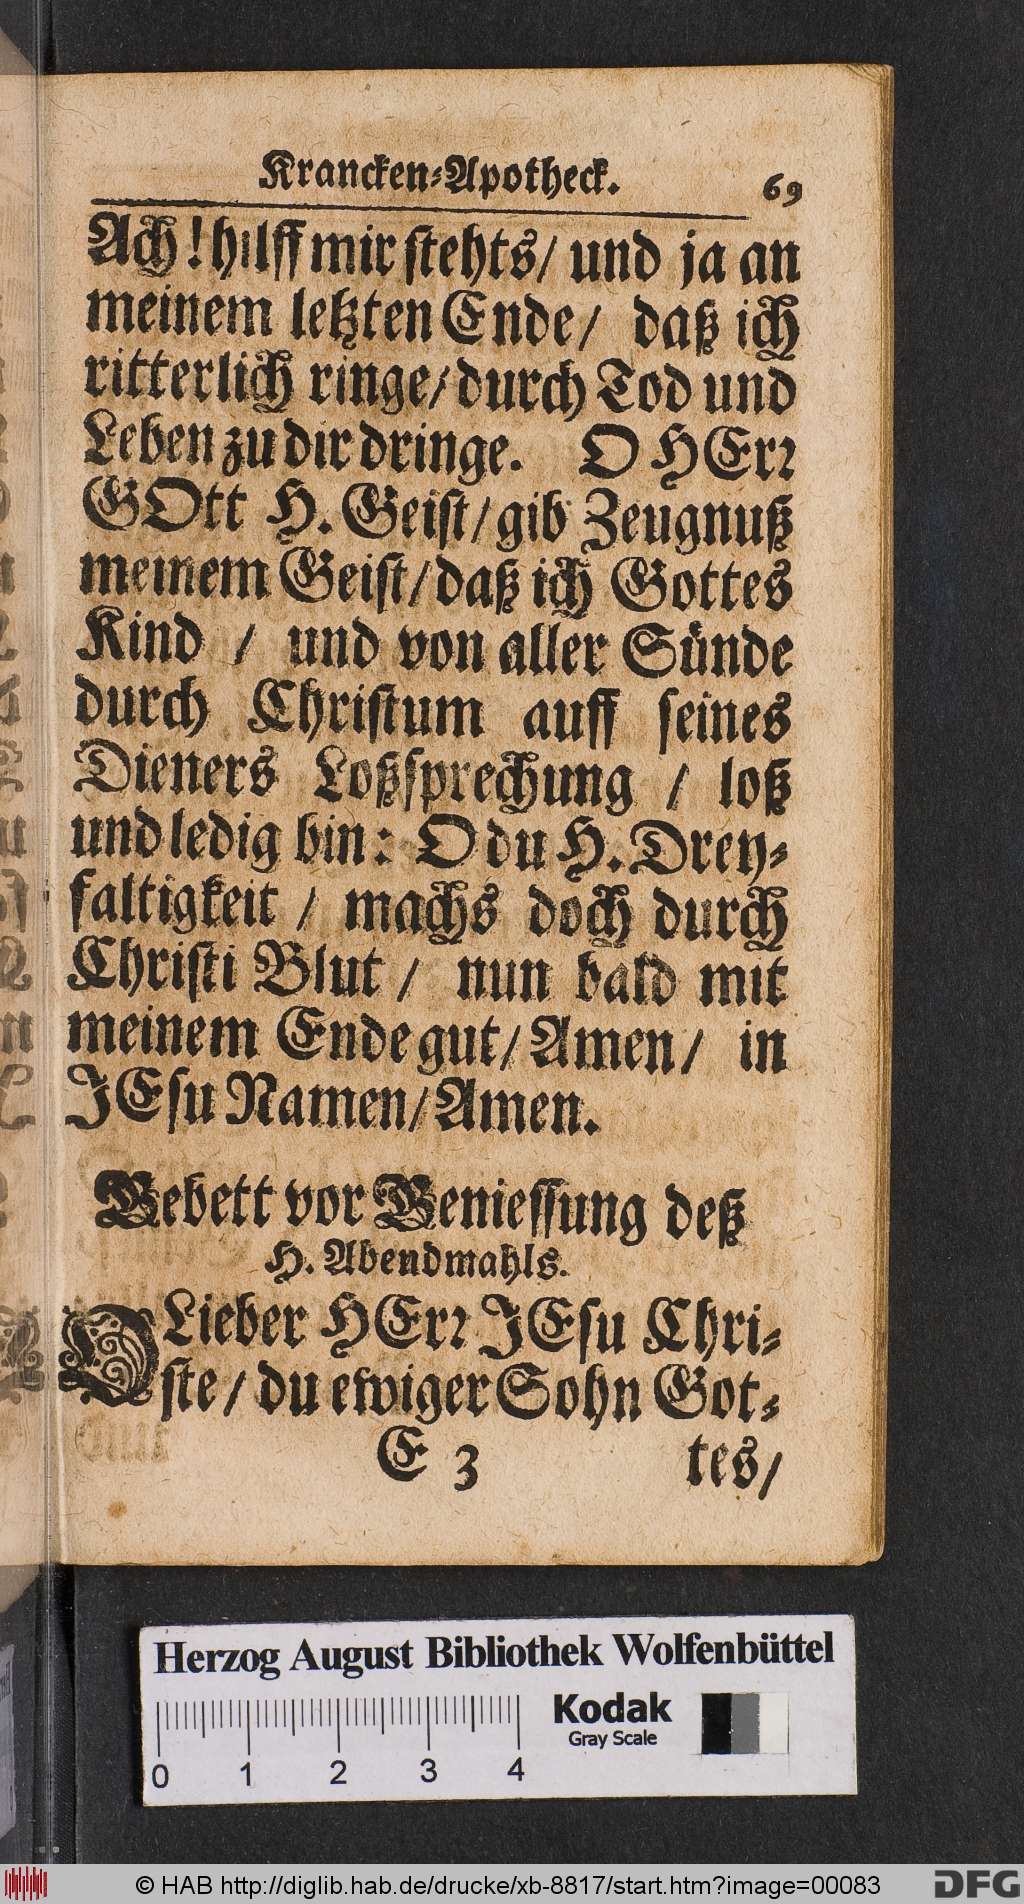 Krancken-Apotheck. 69
Ach! hilff mir stehts/ und ja an
meinem letzten Ende/ daß ich
ritterlich ringe/ durch Tod und
Leben zu dir dringe. O HErr
GOtt H. Geist/ gib Zeugnuß
meinem Geist/ daß ich Gottes
Kind / und von aller Sünde
durch Christum auff seines
Dieners Loßsprechung / loß
und ledig bin: O du H. Drey-
faltigkeit / machs doch durch
Christi Blut / nun bald mit
meinem Ende gut/ Amen/ in
JEsu Namen/ Amen.
Gebett vor Geniessung deß
H. Abendmahls.
O Lieber HErr JEsu Chri-
ste/ du ewiger Sohn Got-
E 3 tes/
Herzog August Bibliothek Wolfenbüttel
Kodak
Gray Scale
0 1 2 3 4
© HAB http://diglib.hab.de/drucke/xb-8817/start.htm?image=00083
DFG